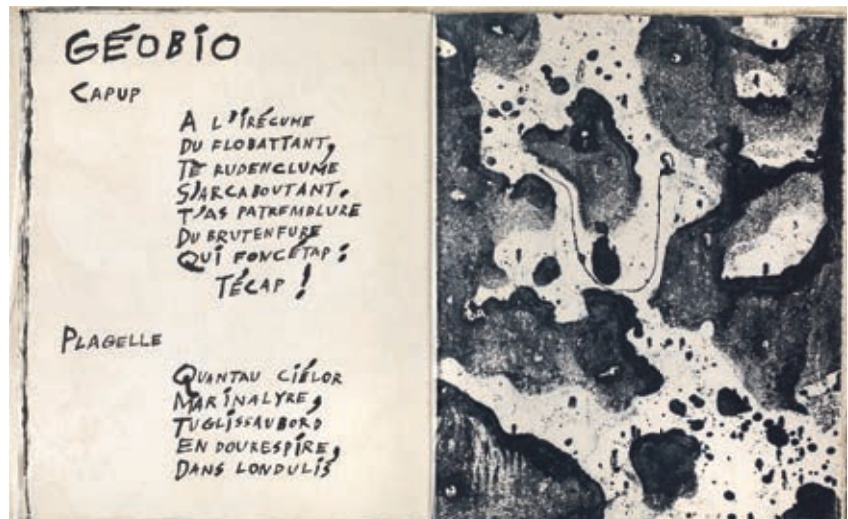 GÉOBIO
CAPUP
A L'IRÉCUME
DU FLOBATTANT,
TE RUDENCLUME
S'ARCABOUTANT.
T'AS PATREMBLURE
DU BRUTENFURE
QUI FONCÉTAP :
TÉCAP !
PLAGELLE
QUANTAU CIÉLOR
MARINALYRE,
TUGLISSAUBORD
EN DOURESPIRE,
DANS LONDULIS